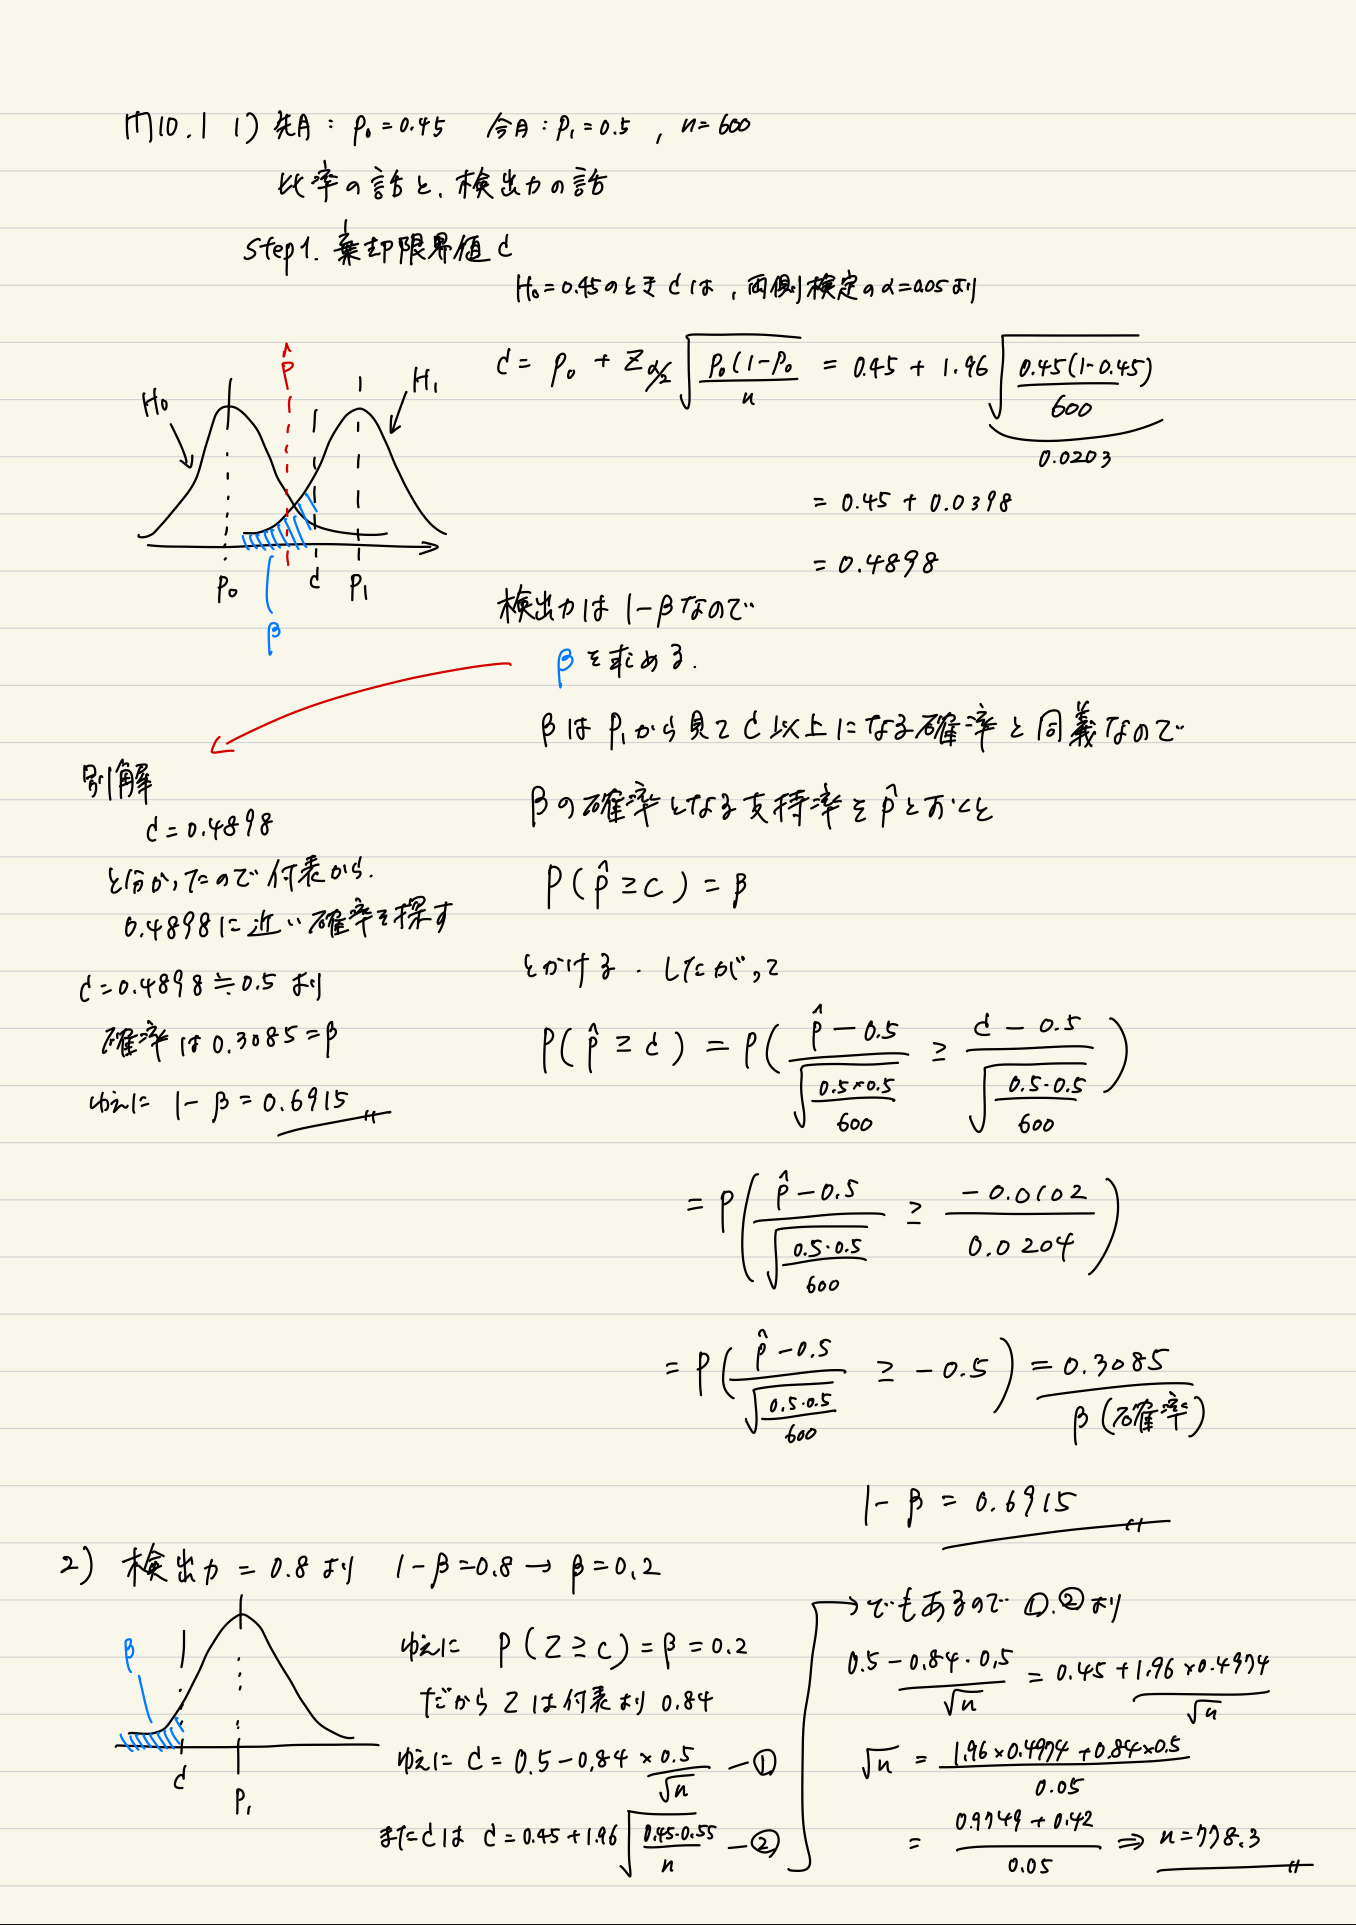 問10.1 1) 先月: p₀=0.45 今月: p₁=0.5 , n=600
比率の話と、検出力の話
Step1. 棄却限界値 c
H₀=0.45のとき cは、両側検定のα=0.05より
c = p₀ + Z_{α/2} √(p₀(1-p₀ / n) = 0.45 + 1.96 √(0.45(1-0.45) / 600)
0.0203
= 0.45 + 0.0398
= 0.4898
H₀ p̂ H₁
p₀ c p₁
β
検出力は 1-β なので
βを求める.
βは p₁から見て c以上になる確率と同義なので
βの確率となる支持率を p̂ とおくと
P( p̂ ≥ c ) = β
とかける. したがって
P( p̂ ≥ c ) = P( (p̂ - 0.5) / √(0.5×0.5 / 600) ≥ (c - 0.5) / √(0.5·0.5 / 600) )
= P( (p̂ - 0.5) / √(0.5·0.5 / 600) ≥ -0.0102 / 0.0204 )
= P( (p̂ - 0.5) / √(0.5·0.5 / 600) ≥ -0.5 ) = 0.3085
β (確率)
1-β = 0.6915
別解
c = 0.4898
と分かったので付表から.
0.4898に近い確率を探す
c = 0.4898 ≒ 0.5 より
確率は 0.3085 = β
ゆえに 1-β = 0.6915
2) 検出力 = 0.8 より 1-β = 0.8 → β = 0.2
β
c p₁
ゆえに P( Z ≥ c ) = β = 0.2
だから Z は付表より 0.84
ゆえに c = 0.5 - 0.84 × 0.5 / √n -①
また c は c = 0.45 + 1.96 √(0.45·0.55 / n) -②
→ でもあるので ①.② より
0.5 - 0.84·0.5 / √n = 0.45 + 1.96×0.4974 / √n
√n = (1.96×0.4974 + 0.84×0.5) / 0.05
= (0.9749 + 0.42) / 0.05 ⇒ n = 778.3